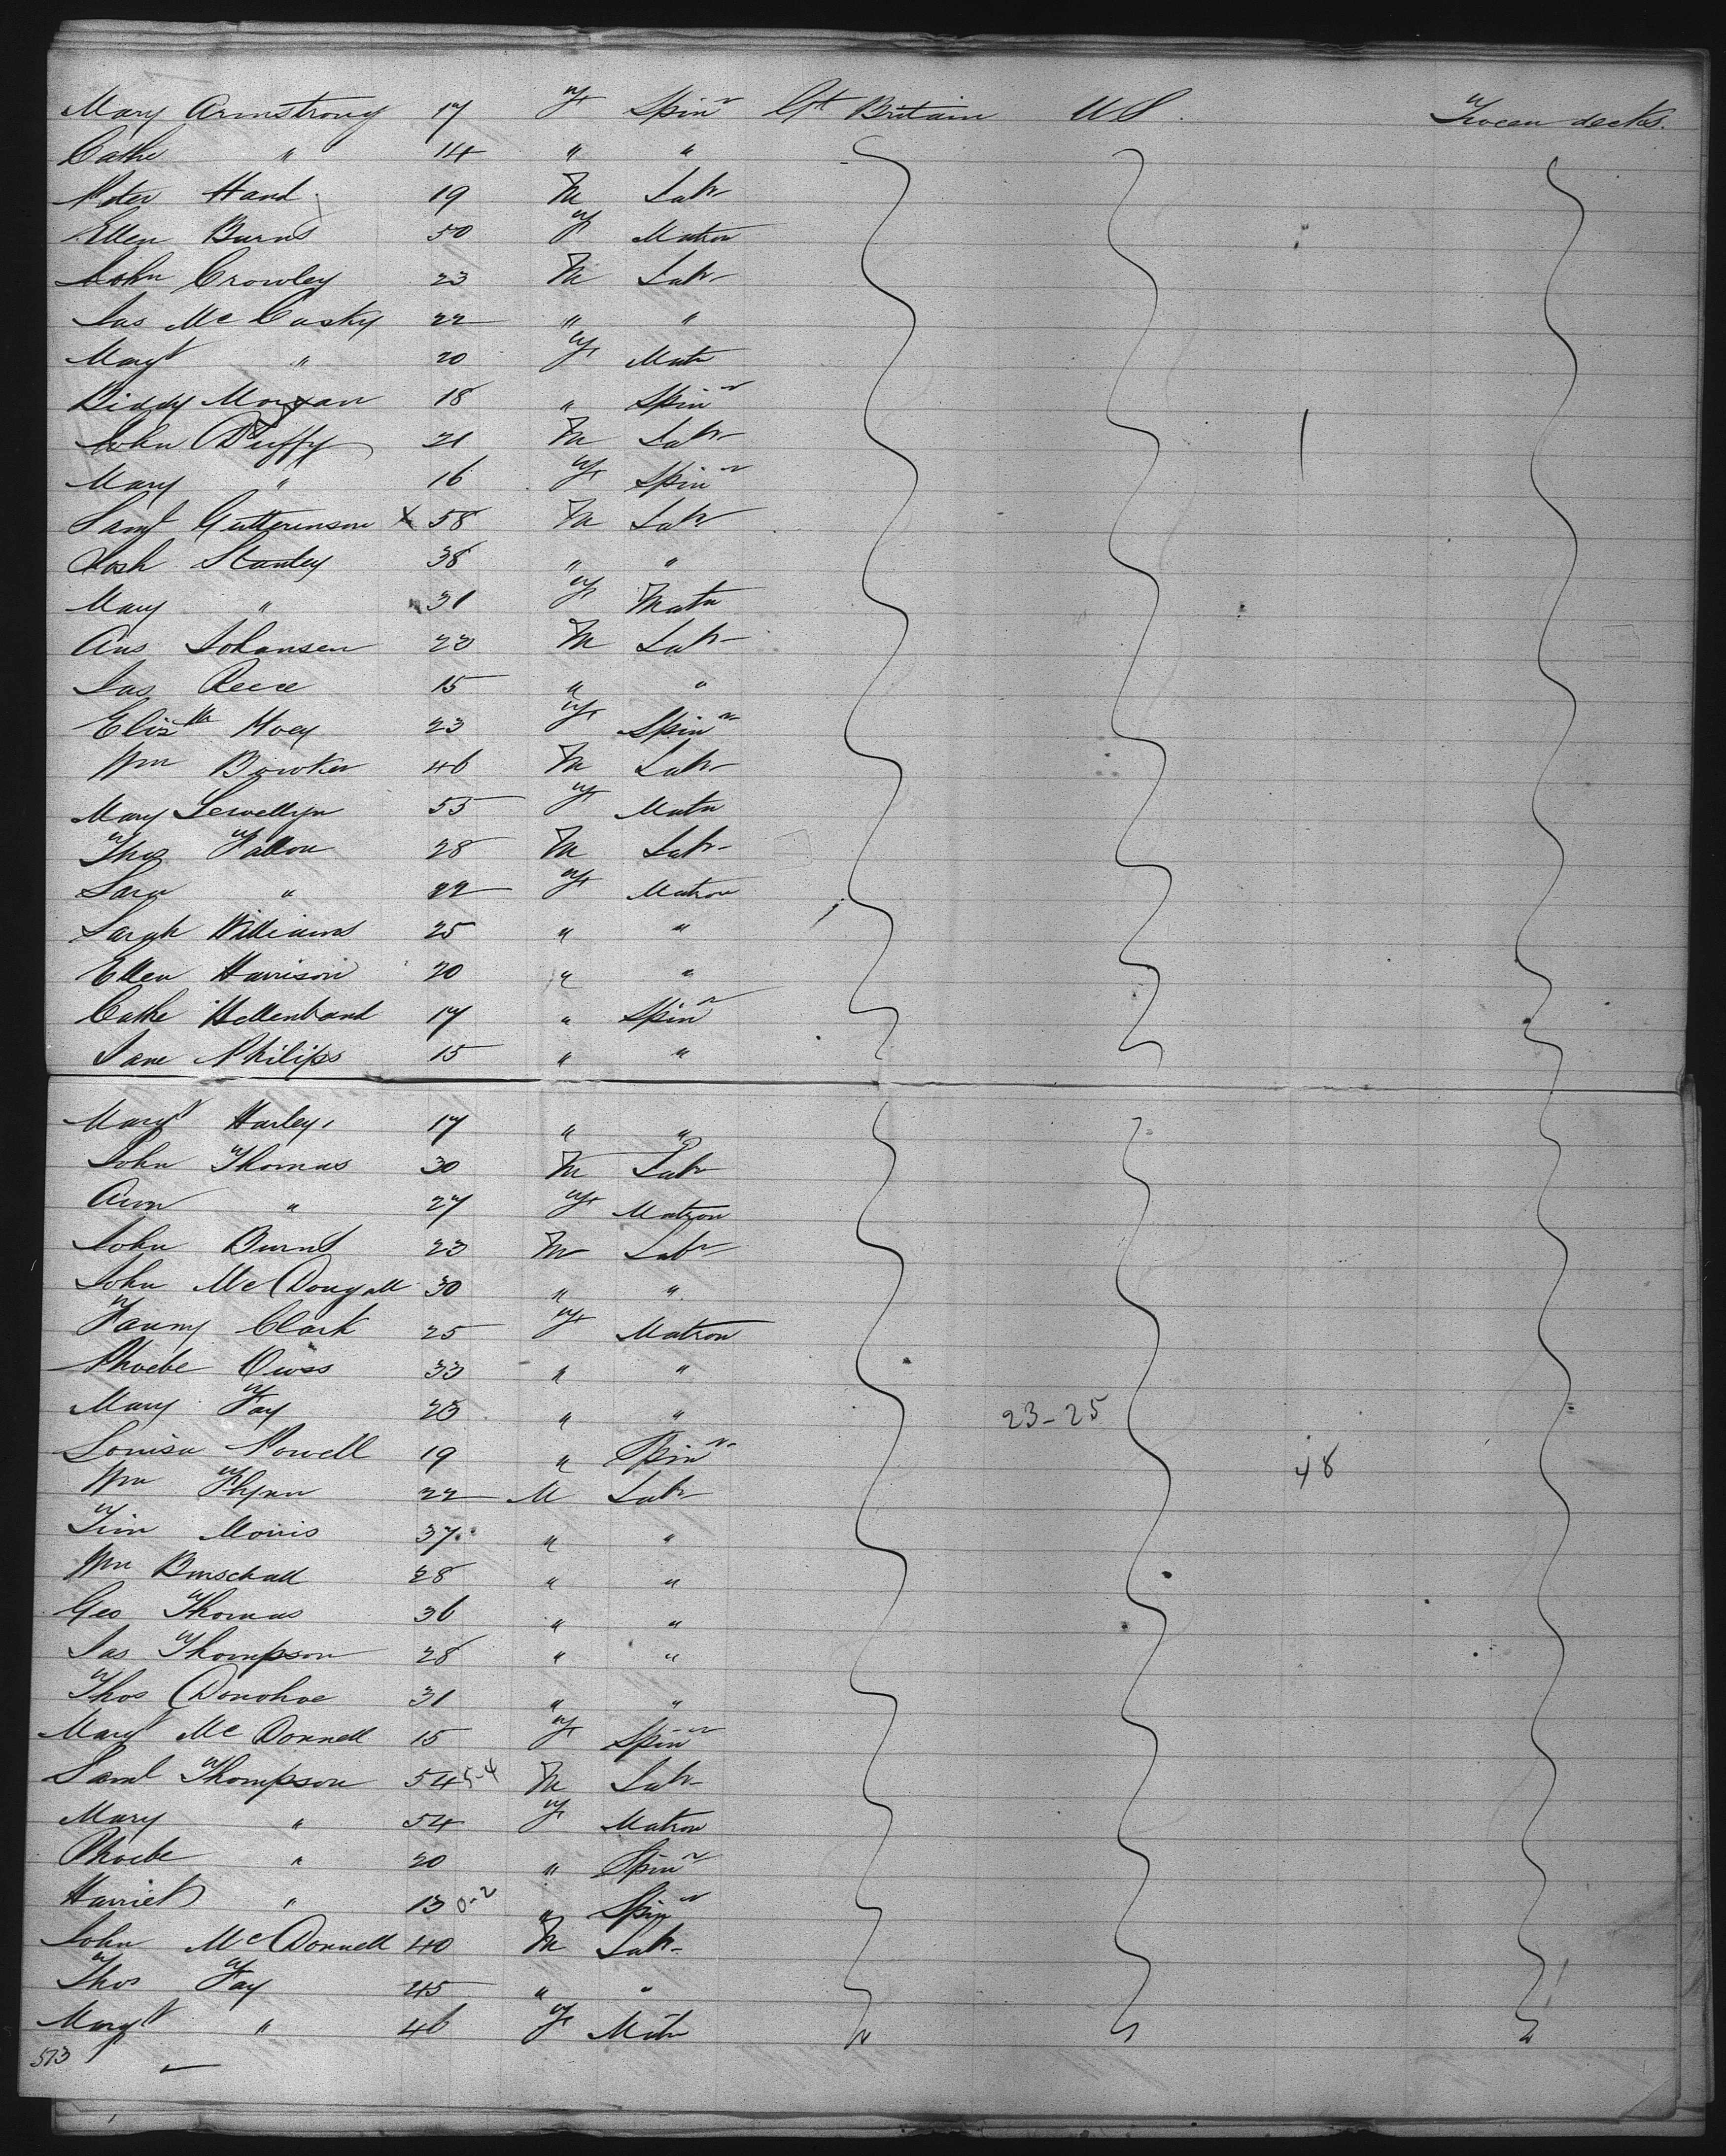 Mary Armstrong 17 f Spinr Gt Britain U S. Tween decks.
Cathe " 14 " "
Peter Hand 19 M Labr
Ellen Burns 50 f Matron
John Crowley 23 M Labr
Jas McCusky 22 " "
Margt " 20 f Matn
Biddy Morgan 18 " Spinr
John Duffy 21 M Labr
Mary " 16 f Spinr
Saml Gutterinson x 58 M Labr
Josh Stanley 38 " "
Mary " 31 f Matn
Aus Johansen 23 M Labr
Jas Reece 15 " "
Elizth Hoey 23 f Spinr
Wm Bowker 46 M Labr
Mary Lewellyn 55 f Matn
Thos Fallon 28 M Labr
Sara " 22 f Matron
Sarah Williams 25 " "
Ellen Harrison 20 " "
Cathe Hellenband 17 " Spinr
Jane Philips 15 " "
Margt Harley 17 " "
John Thomas 30 M Labr
Ann " 27 f Matron
John Burns 23 M Labr
John McDougall 30 " "
Fanny Clark 25 f Matron
Phoebe 33 " "
Mary Fay 23 " " 23-25
Louisa Powell 19 " Spinr 48
Wm Flynn 22 M Labr
Tim Morris 37 " "
Wm Burschall 28 " "
Geo Thomas 36 " "
Jas Thompson 28 " "
Thos Donohoe 31 " "
Margt McDonnell 15 f Spinr
Saml Thompson 54 5-4 M Labr
Mary " 54 f Matron
Phoebe " 20 " Spinr
Harriet " 13 0-2 " Spinr
John McDonnell 40 M Labr
Thos Fay 45 " "
Margt " 46 f Matn
513